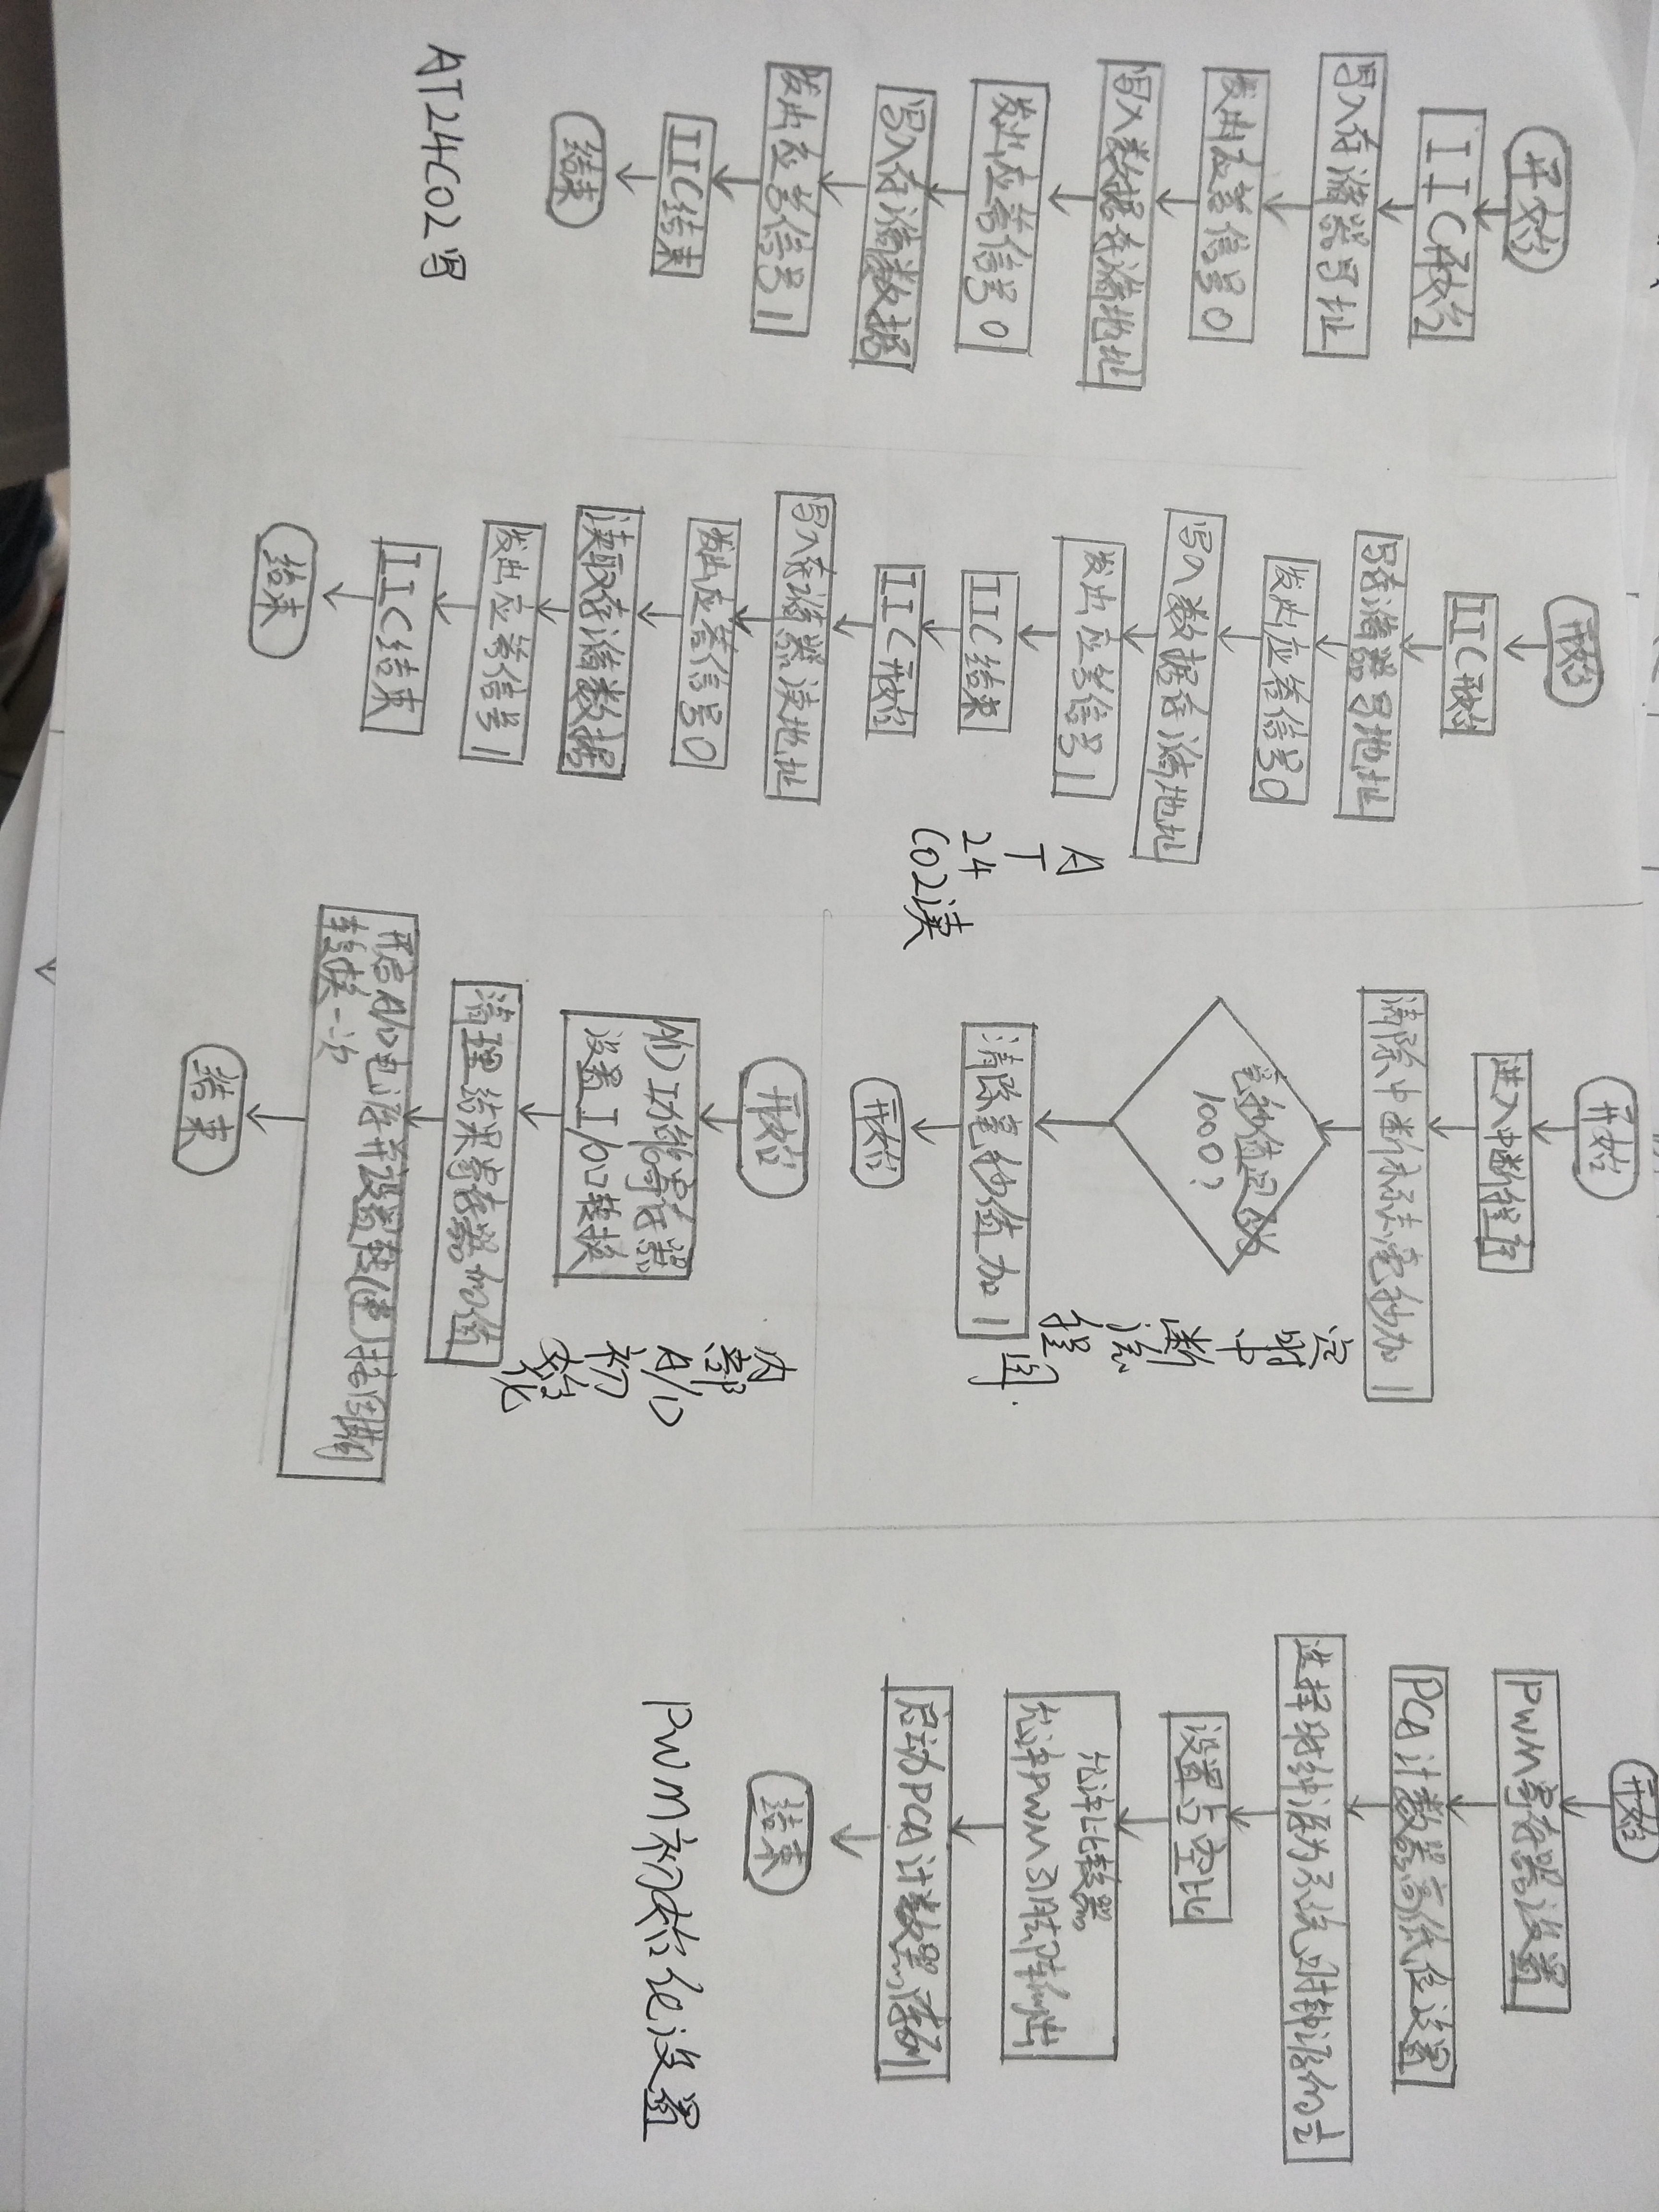 开始
IIC开始
写入存储器写址
发出应答信号0
写入数据存储地址
发出应答信号0
写入存储数据
发出应答信号1
IIC结束
结束
AT24C02写
开始
IIC开始
写存储器写地址
发出应答信号0
写入数据存储地址
发出应答信号1
IIC结束
IIC开始
写入存储器读地址
发出应答信号0
读取存储数据
发出应答信号1
IIC结束
结束
A
T
24
C02读
开始
进入中断程序
清除中断标志毫秒加1
毫秒值是否为
1000?
清除毫秒值加1
开始
定时中断流程图.
开始
A/D功能寄存器
设置I/O口转换
清理结果寄存器的值
开启A/D电源并设置转(速)换周期
转换一次
结束
内部A/D初始化
开始
PWM寄存器设置
PCA计数器高低位设置
选择时钟源为系统时钟源的½
设置占空比
允许比较器
允许PWM引脚阵列出
启动PCA计数器阵列
结束
PWM初始化设置